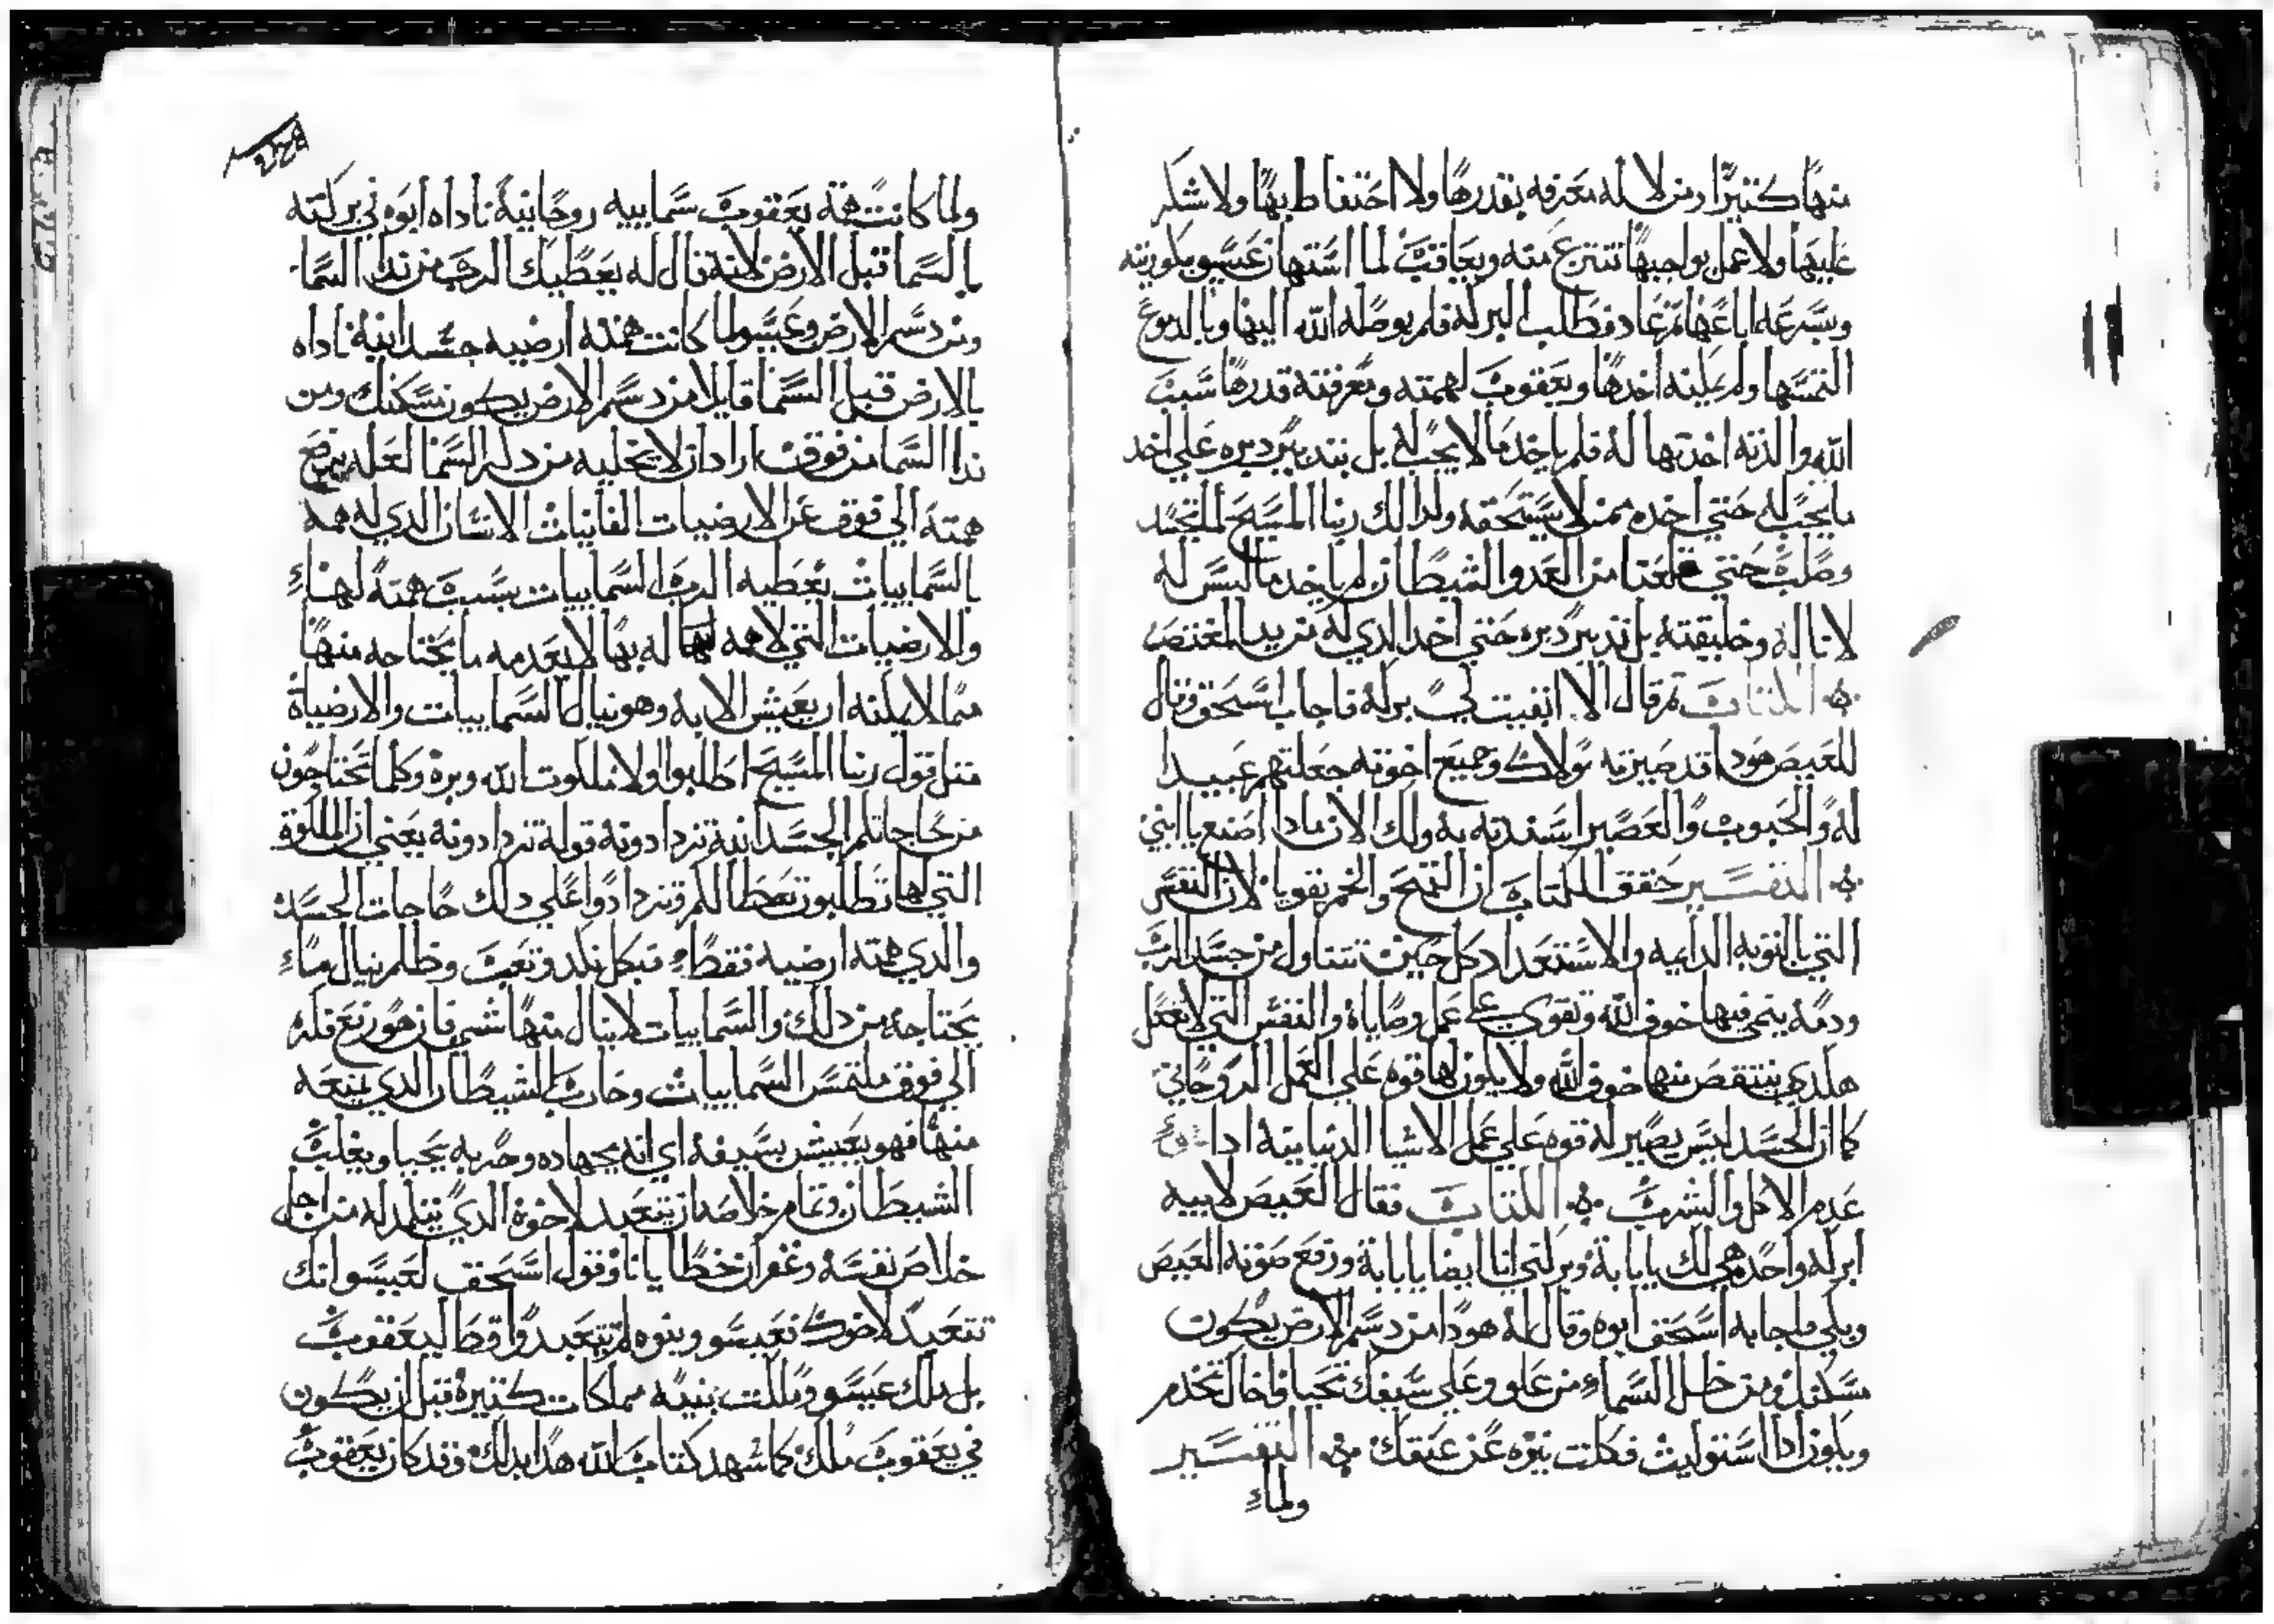 منها كتيرا ومن لا له معرفه بقدرها ولا احتفاظ بها ولا شكر
عليها ولا عمل بواجبها تنتزع منه ويعاقب لما استهان عيسو بكوريته
وبسرعه اباعها تم عاد وطلب البركه فلم يوصله الله اليها وبالدموع
التمسها ولم يمكنه اخدها ويعقوب لهمته ومعرفته قدرها سبب
الله والدته اخدتها له فلم ياخد ما لا يجب له بل بتدبير دبره على اخد
ما يجب له حتي اخده ممن لا يستحقه ولدالك ربنا المسيح لما تجسد
وصلب حتي خلعنا من العدو الشيطان لم ياخد ما ليس له
لاننا له وخليقته بل تدبير دبره حتي اخد الدي له من يد المغتصب
الكتاب تم قال الا ابقيت لي بركه فاجاب اسحق وقال
للعيص هودا قد صيرته مولاك وجميع اخوته جعلتهم عبيدا
له والحبوب والعصير اسندته به ولك الان مادا اصنع يا ابني
التفسير حقق الكتاب ان القمح والخمر يقويا لان النفس
التي بالتوبه الدايمه والاستعداد كل حين تتناول من جسد الرب
ودمه ينمي فيها خوف الله وتقوي على عمل وصاياه والنفس التي لا تفعل
هكدي ينتقص منها خوف الله ولا يكون لها قوه علي العمل الروحاني
كما ان الجسد ليس يصير له قوه علي عمل الاشيا الدنيانيه ادا
عدم الاكل والشرب الكتاب فقال العيص لابيه
ابركه واحده هي لك يا ابابه وبركتي انا ايضا يا ابابه ورفع صوته العيص
وبكي فاجابه اسحق ابوه وقال له هودا من دسم الارض يكون
مسكنك ومن طل السماء من علو وعلي سيفك تحيا ولاخاك تخدم
ويكون ادا استوليت فككت نيره عن عنقك التفسير
ولماء
ولما كانت همة يعقوب سماييه روحانية ناداه ابوه في بركته
بالسما قبل الارض لانه قال له يعطيك الرب من ندا السما
ومن دسم الارض وعيسو لما كانت همته ارضيه جسدانية ناداه
بالارض قبل السما قايلا من دسم الارض يكون مسكنك ومن
ندا السما من فوق اراد ان لا يخليه من دكر السما لعله يرفع
همته الي فوق عن الارضيات الفانيات الانسان الدي له همه
بالسماييات يعطيه الرب السماييات بسبب همته لهاء
والارضيات التي لا همه له بها لا يعدمه ما يحتاجه منها
مما لا يمكنه ان يعيش الا به وهو ينال السماييات والارضياة
متل قول ربنا المسيح اطلبوا اولا ملكوت الله وبره وكلما تحتاجون
من حاجاتكم الجسدانيه تزدادونه قوله تزدادونه يعني ان الملكوة
التي لها تطلبون تعطا لكم وتزدادوا علي دلك حاجات الجسد
والدي همته ارضيه فقط فبكل نكد وتعب وظلم ينال ماء
يحتاجه من دلك والسماييات لا ينال منها شي فان هو رفع قلبه
الي فوق ملتمس السماييات وحارب الشيطان الدي يمنعه
منها فهو يعيش بسيفه اي انه بجهاده وحربه يحيا ويغلب
الشيطان وتمام خلاصه ان يتعبد لاخوه الدي يتلمد له من اجل
خلاص نفسه وغفران خطاياه وقول اسحق لعيسو انك
تتعبد لاخوك فعيسو وبنوه لم يتعبدوا قط ليعقوب
بل ملك عيسو وملكت بنيه مملكات كتيره قبل ان يكون
في يعقوب ملك كما شهد كتاب الله هدا بدلك وقد كان يعقوب